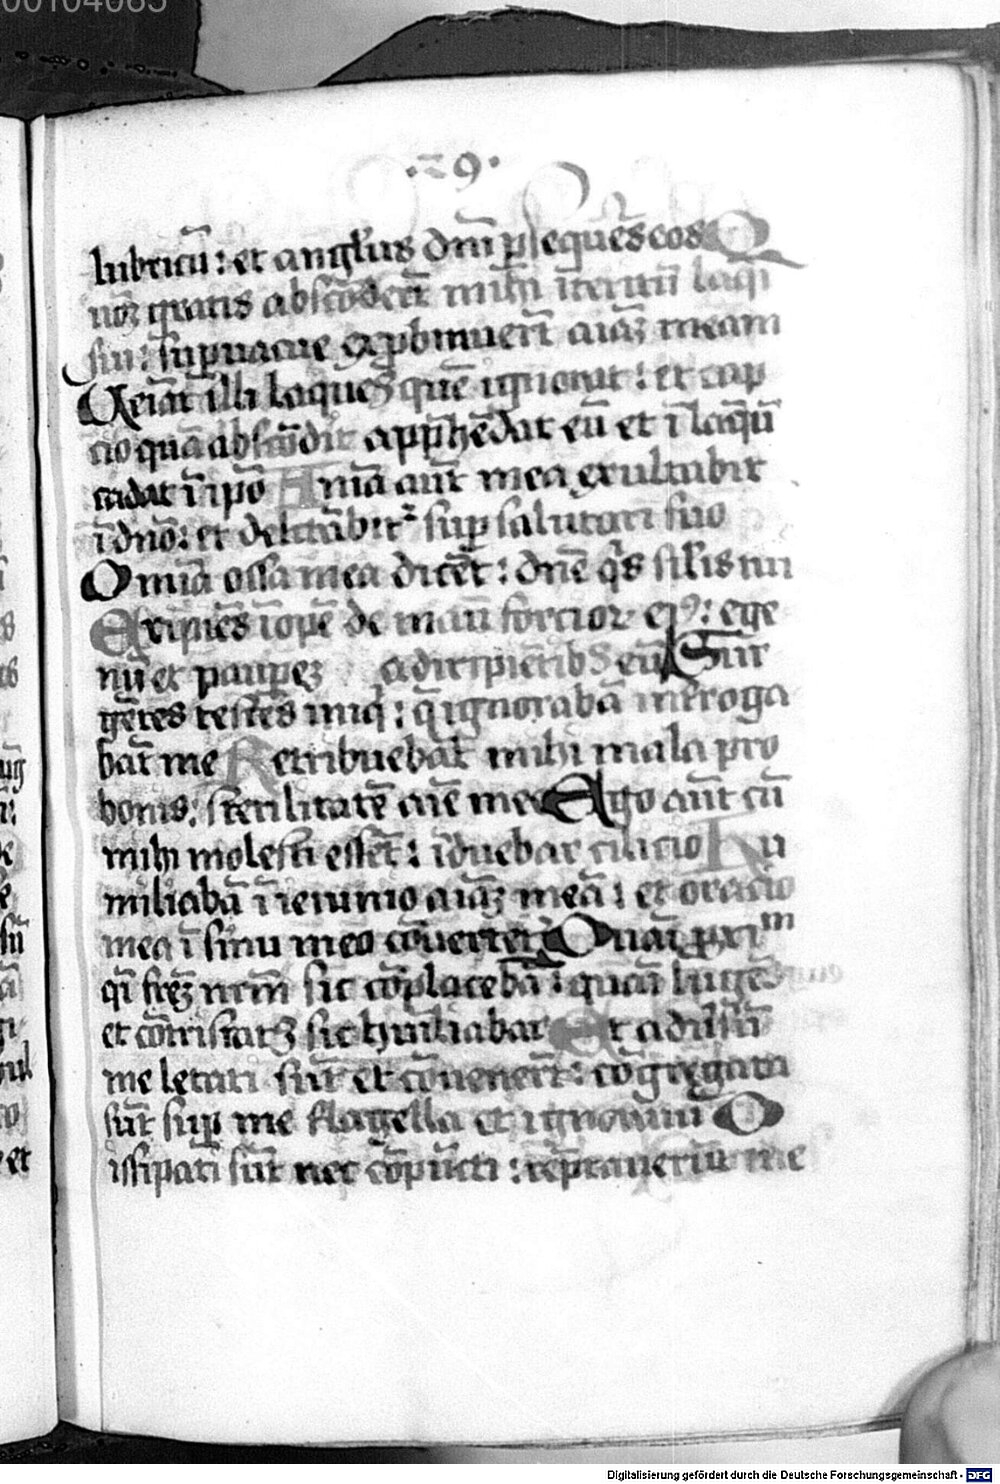 00104085
.29.
lubricū: et angl'us dnī p̄sequēs eos Q
uoꝫ gratis abscōderūt mihi īteritū laq̄i
sui: sup̄uacue exprobrauerūt aīaꝫ meam
Ueiāt illi laqueꝰ quē ignorat: et cap
cio quā abscōdit app̄hēdat eū et ī laq̄ū
cadat ī ip̄o Aīma aūt mea exultabit
ī dnō: et delectabitᷣ sup̄ salutari suo
Omīa ossa mea dicēt: dnē q̄s sīlis tui
Eripiēs īopē de manū forcior eiꝰ: ege
nū et paup̄eꝫ a diripiētibꝰ eū Sur
gētes testes iniq̄: q̄ ignorabā īterroga
bāt me Retribuebāt mihi mala pro
bonis: sterilitatē aīe mee Ego aūt cū
mihi molesti essēt: īduebar cilicio Hu
miliabā ī ieiunio aīaꝫ meā: et oracio
mea ī sinu meo cōuertetᷣ Quāi proxim
q̄i frēꝫ nrm̄ sic cōplacebā: quāi lugēs
et cōtristatꝰ sic hūiliabar Et adūsū
me letati sūt et cōuenerūt: cōgregata
sūt sup̄ me flagella et ignoraui D
issipati sūt nec cōpūcti: tēptauerūt me
Digitalisierung gefördert durch die Deutsche Forschungsgemeinschaft - DFG